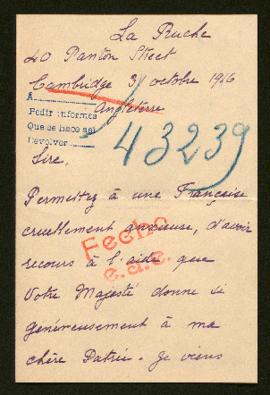 La Ruche
40 Panton Street
Cambridge 3 octobre 1916
Angleterre
A
Pedir informes
Que se hace así
Devolver
43239
Sire,
Permettez à une Française
cruellement anxieuse, d'avoir
recours à l'aide que
Votre Majesté donne si
généreusement à ma
chère Patrie. Je viens
Fecho